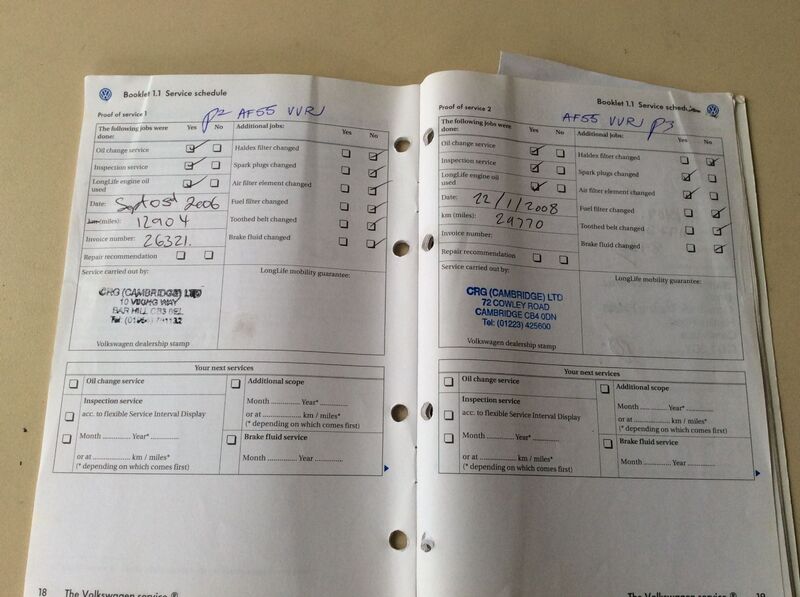 Booklet 1.1 Service schedule
Proof of service 1
p2 AF55 VVRJ
The following jobs were done:
Yes No
Additional jobs:
Yes No
Oil change service
Haldex filter changed
Inspection service
Spark plugs changed
LongLife engine oil used
Air filter element changed
Date: Sept 05th 2006
Fuel filter changed
km (miles): 12904
Toothed belt changed
Invoice number: 26321.
Brake fluid changed
Repair recommendation
Service carried out by:
LongLife mobility guarantee:
CRG (CAMBRIDGE) LTD
10 VIKING WAY
BAR HILL CB3 8EL
Volkswagen dealership stamp
Your next services
Oil change service
Additional scope
Inspection service
Month .............. Year* ..............
acc. to flexible Service Interval Display
or at .............. km / miles*
(* depending on which comes first)
Month .............. Year* ..............
Brake fluid service
or at .............. km / miles*
(* depending on which comes first)
Month .............. Year ..............
18 The Volkswagen service
Booklet 1.1 Service schedule
Proof of service 2
AF55 VVRJ p3
The following jobs were done:
Yes No
Additional jobs:
Yes No
Oil change service
Haldex filter changed
Inspection service
Spark plugs changed
LongLife engine oil used
Air filter element changed
Date: 22/1/2008
Fuel filter changed
km (miles): 29770
Toothed belt changed
Invoice number:
Brake fluid changed
Repair recommendation
Service carried out by:
LongLife mobility guarantee:
CRG (CAMBRIDGE) LTD
72 COWLEY ROAD
CAMBRIDGE CB4 0DN
Tel: (01223) 425600
Volkswagen dealership stamp
Your next services
Oil change service
Additional scope
Inspection service
Month .............. Year* ..............
acc. to flexible Service Interval Display
or at .............. km / miles*
(* depending on which comes first)
Month .............. Year* ..............
Brake fluid service
or at .............. km / miles*
(* depending on which comes first)
Month .............. Year ..............
The Volkswagen service 19